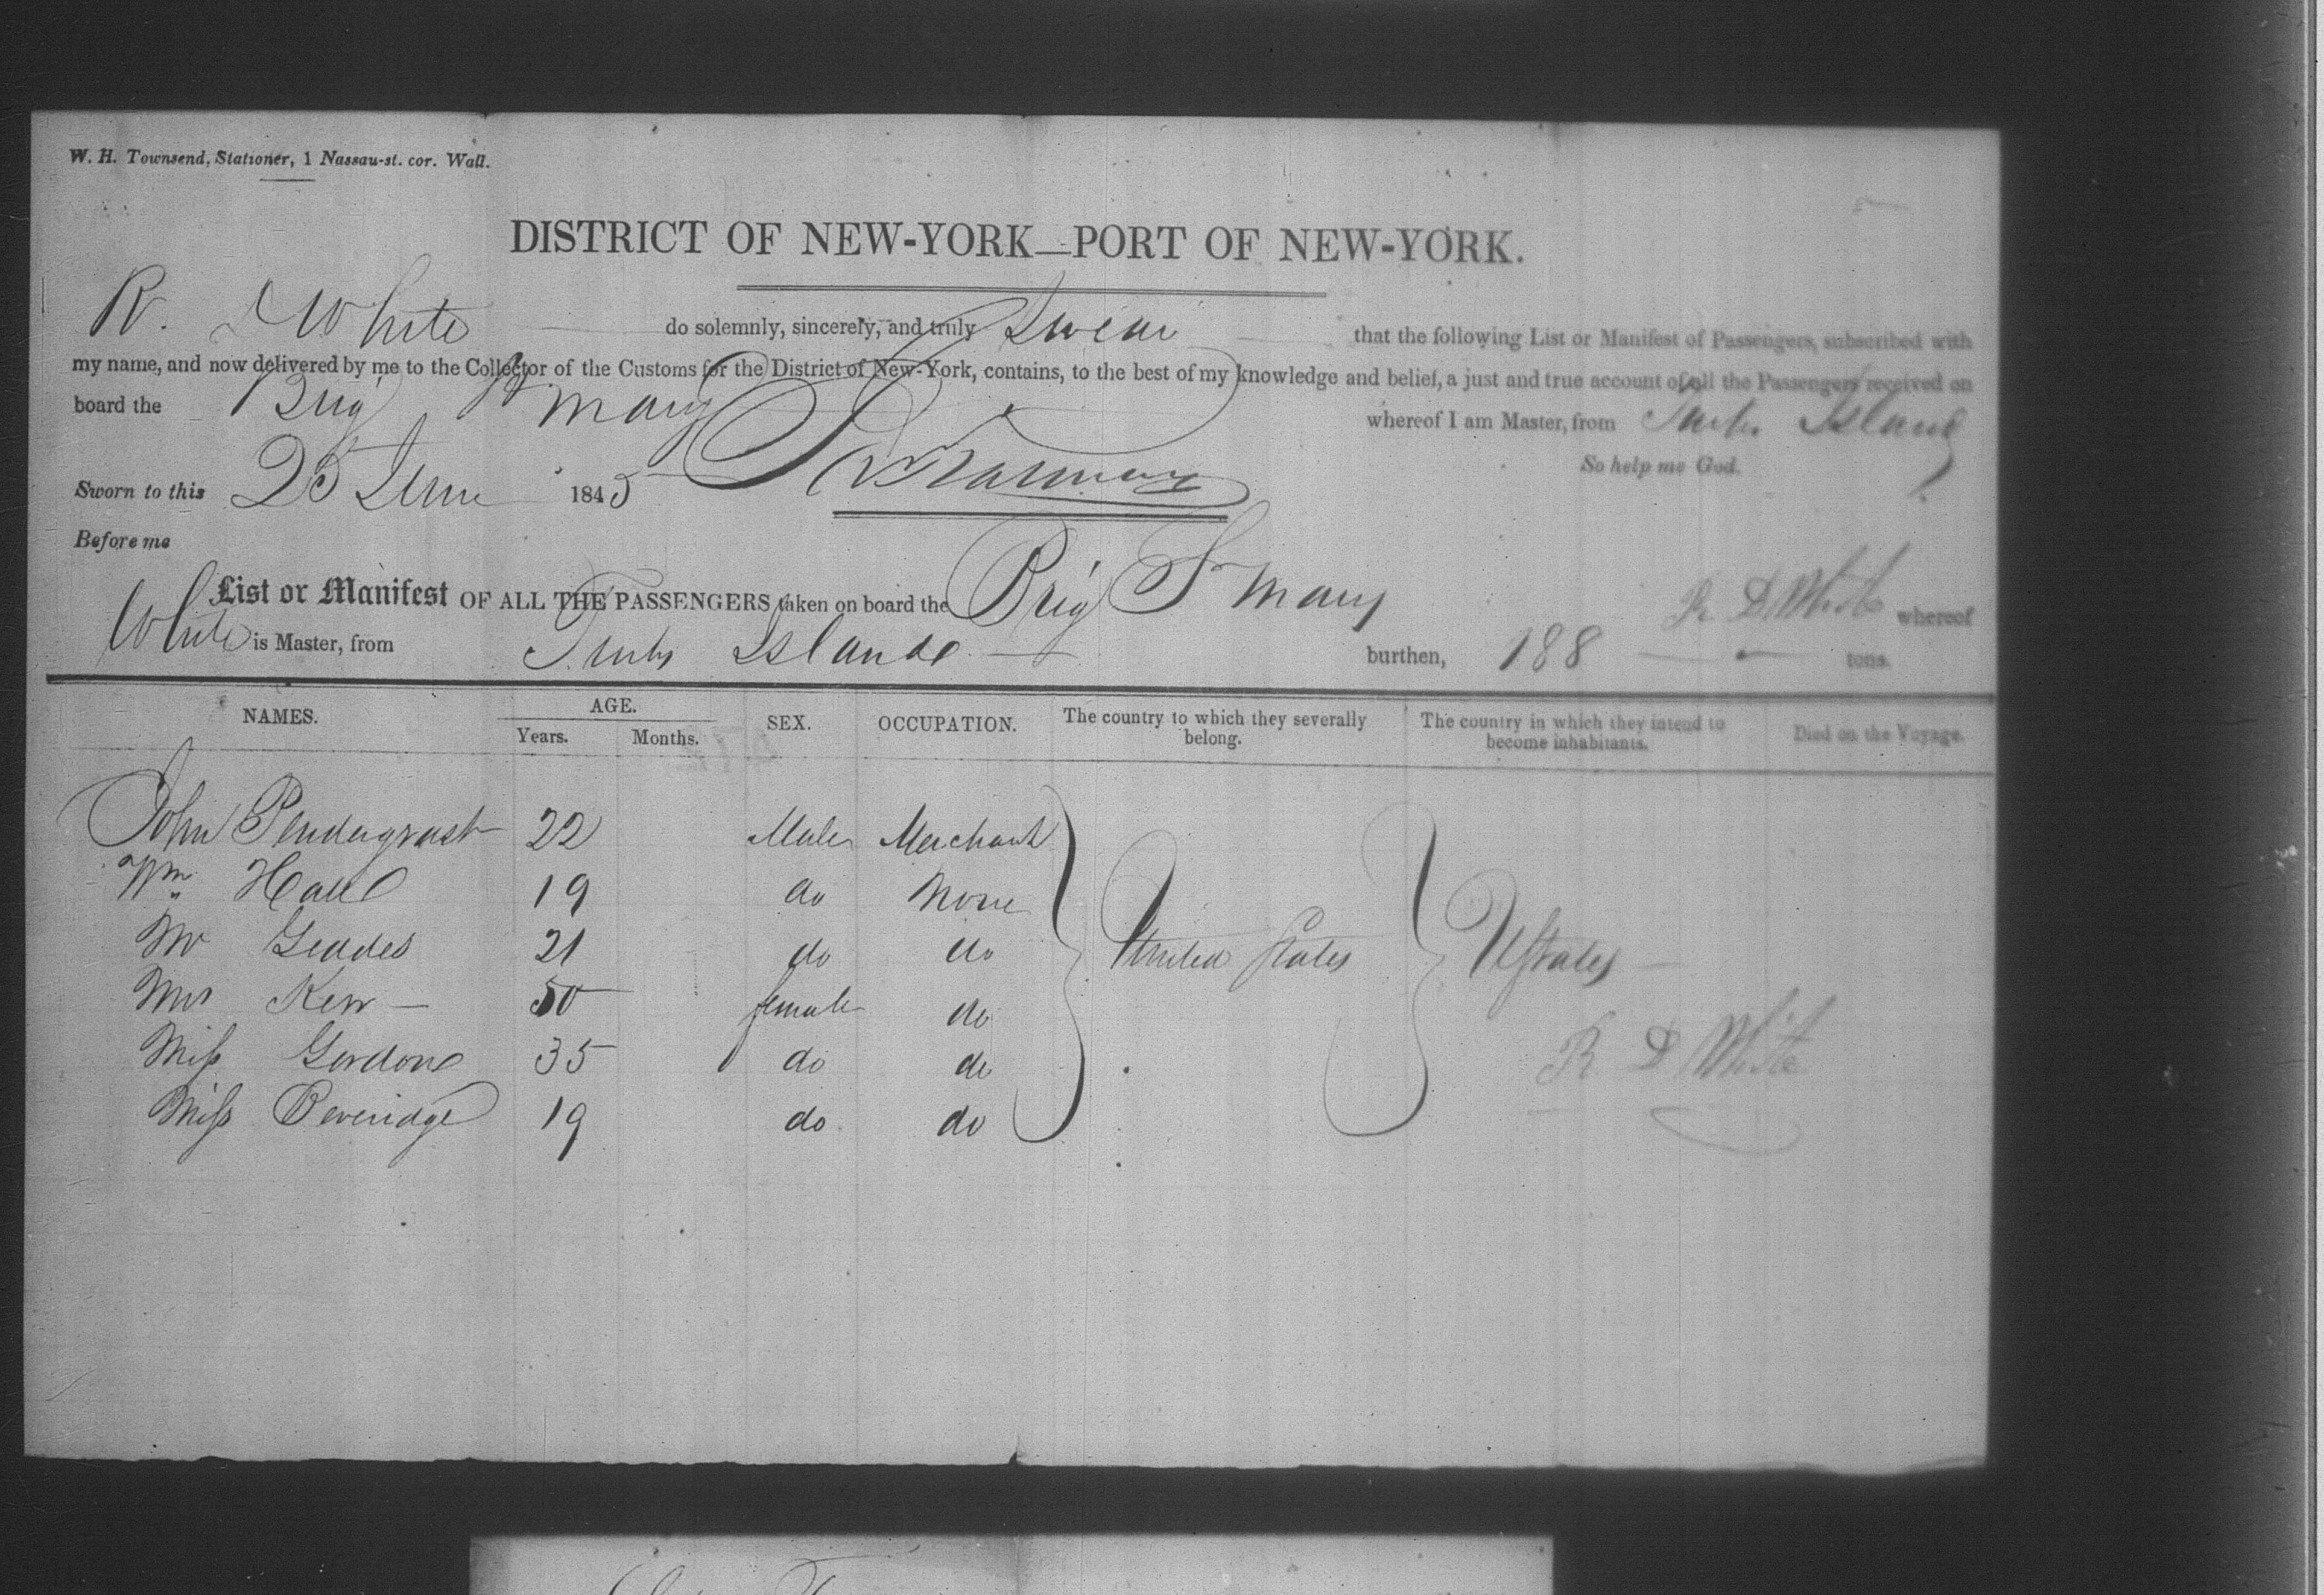 W. H. Townsend, Stationer, 1 Nassau-st. cor. Wall.
DISTRICT OF NEW-YORK—PORT OF NEW-YORK.
R. D White do solemnly, sincerely, and truly Swear that the following List or Manifest of Passengers, subscribed with
my name, and now delivered by me to the Collector of the Customs for the District of New-York, contains, to the best of my knowledge and belief, a just and true account of all the Passengers received on
board the Brig St Mary whereof I am Master, from Turks Island
So help me God.
Sworn to this 25 June 1845
Before me
List or Manifest OF ALL THE PASSENGERS taken on board the Brig St Mary R. D. White whereof
White is Master, from Turks Island burthen, 188 tons.
NAMES. AGE. SEX. OCCUPATION. The country to which they severally belong. The country in which they intend to become inhabitants. Died on the Voyage.
Years. Months.
John Pendergrast 22 Male Merchant
Wm Hall 19 do None
Mr Geddes 21 do do United States UStates
Mrs Kerr 50 female do
Miss Gordon 35 do do R D White
Miss Beveridge 19 do do